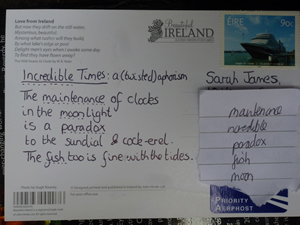 Love from Ireland
But now they drift on the still water,
Mysterious, beautiful;
Among what rushes will they build,
By what lake's edge or pool
Delight men's eyes when I awake some day
To find they have flown away?
Beautiful
IRELAND
ÉIRE
90c
Incredible Times: a (twisted) aphorism
The maintenance of clocks
in the moonlight
is a paradox
to the sundial & cock-erel.
The fish too is fine with the tides.
Sarah James,
maintenance
incredible
paradox
fish
moon
PRIORITY
AERPHOST